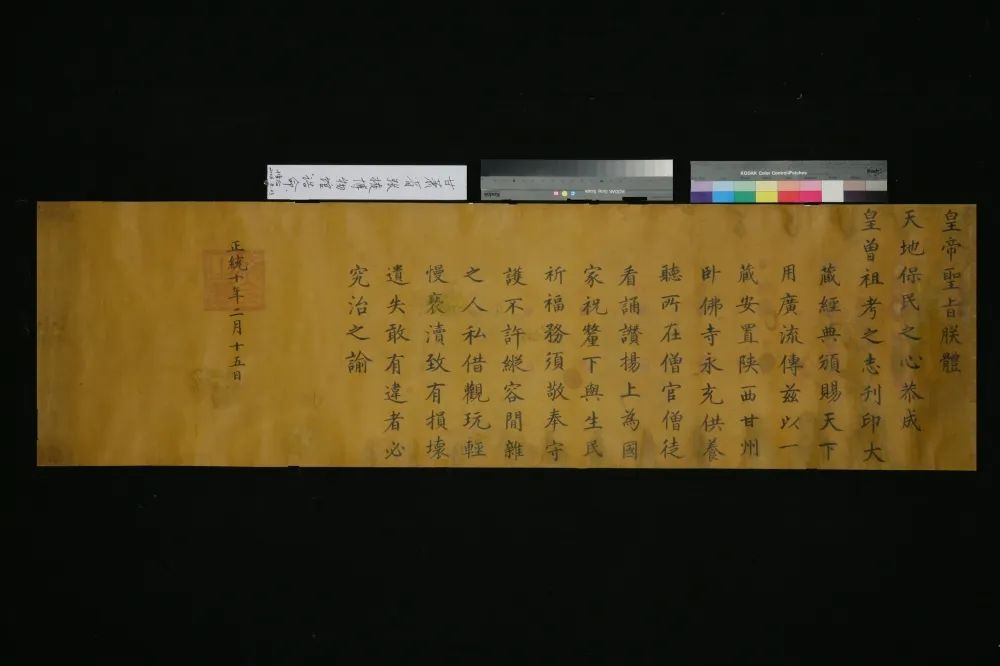 皇帝聖旨朕體
天地保民之心恭成
皇曾祖考之志刊印大
藏經典頒賜天下
用廣流傳茲以一
藏安置陝西甘州
卧佛寺永充供養
聽所在僧官僧徒
看誦讚揚上為國
家祝釐下與生民
祈福務須敬奉守
護不許縱容閒雜
之人私借觀玩輕
慢褻瀆致有損壞
遺失敢有違者必
究治之諭
正統十年二月十五日
KODAK Color Control Patches
Kodak
KODAK Gray Scale
Kodak